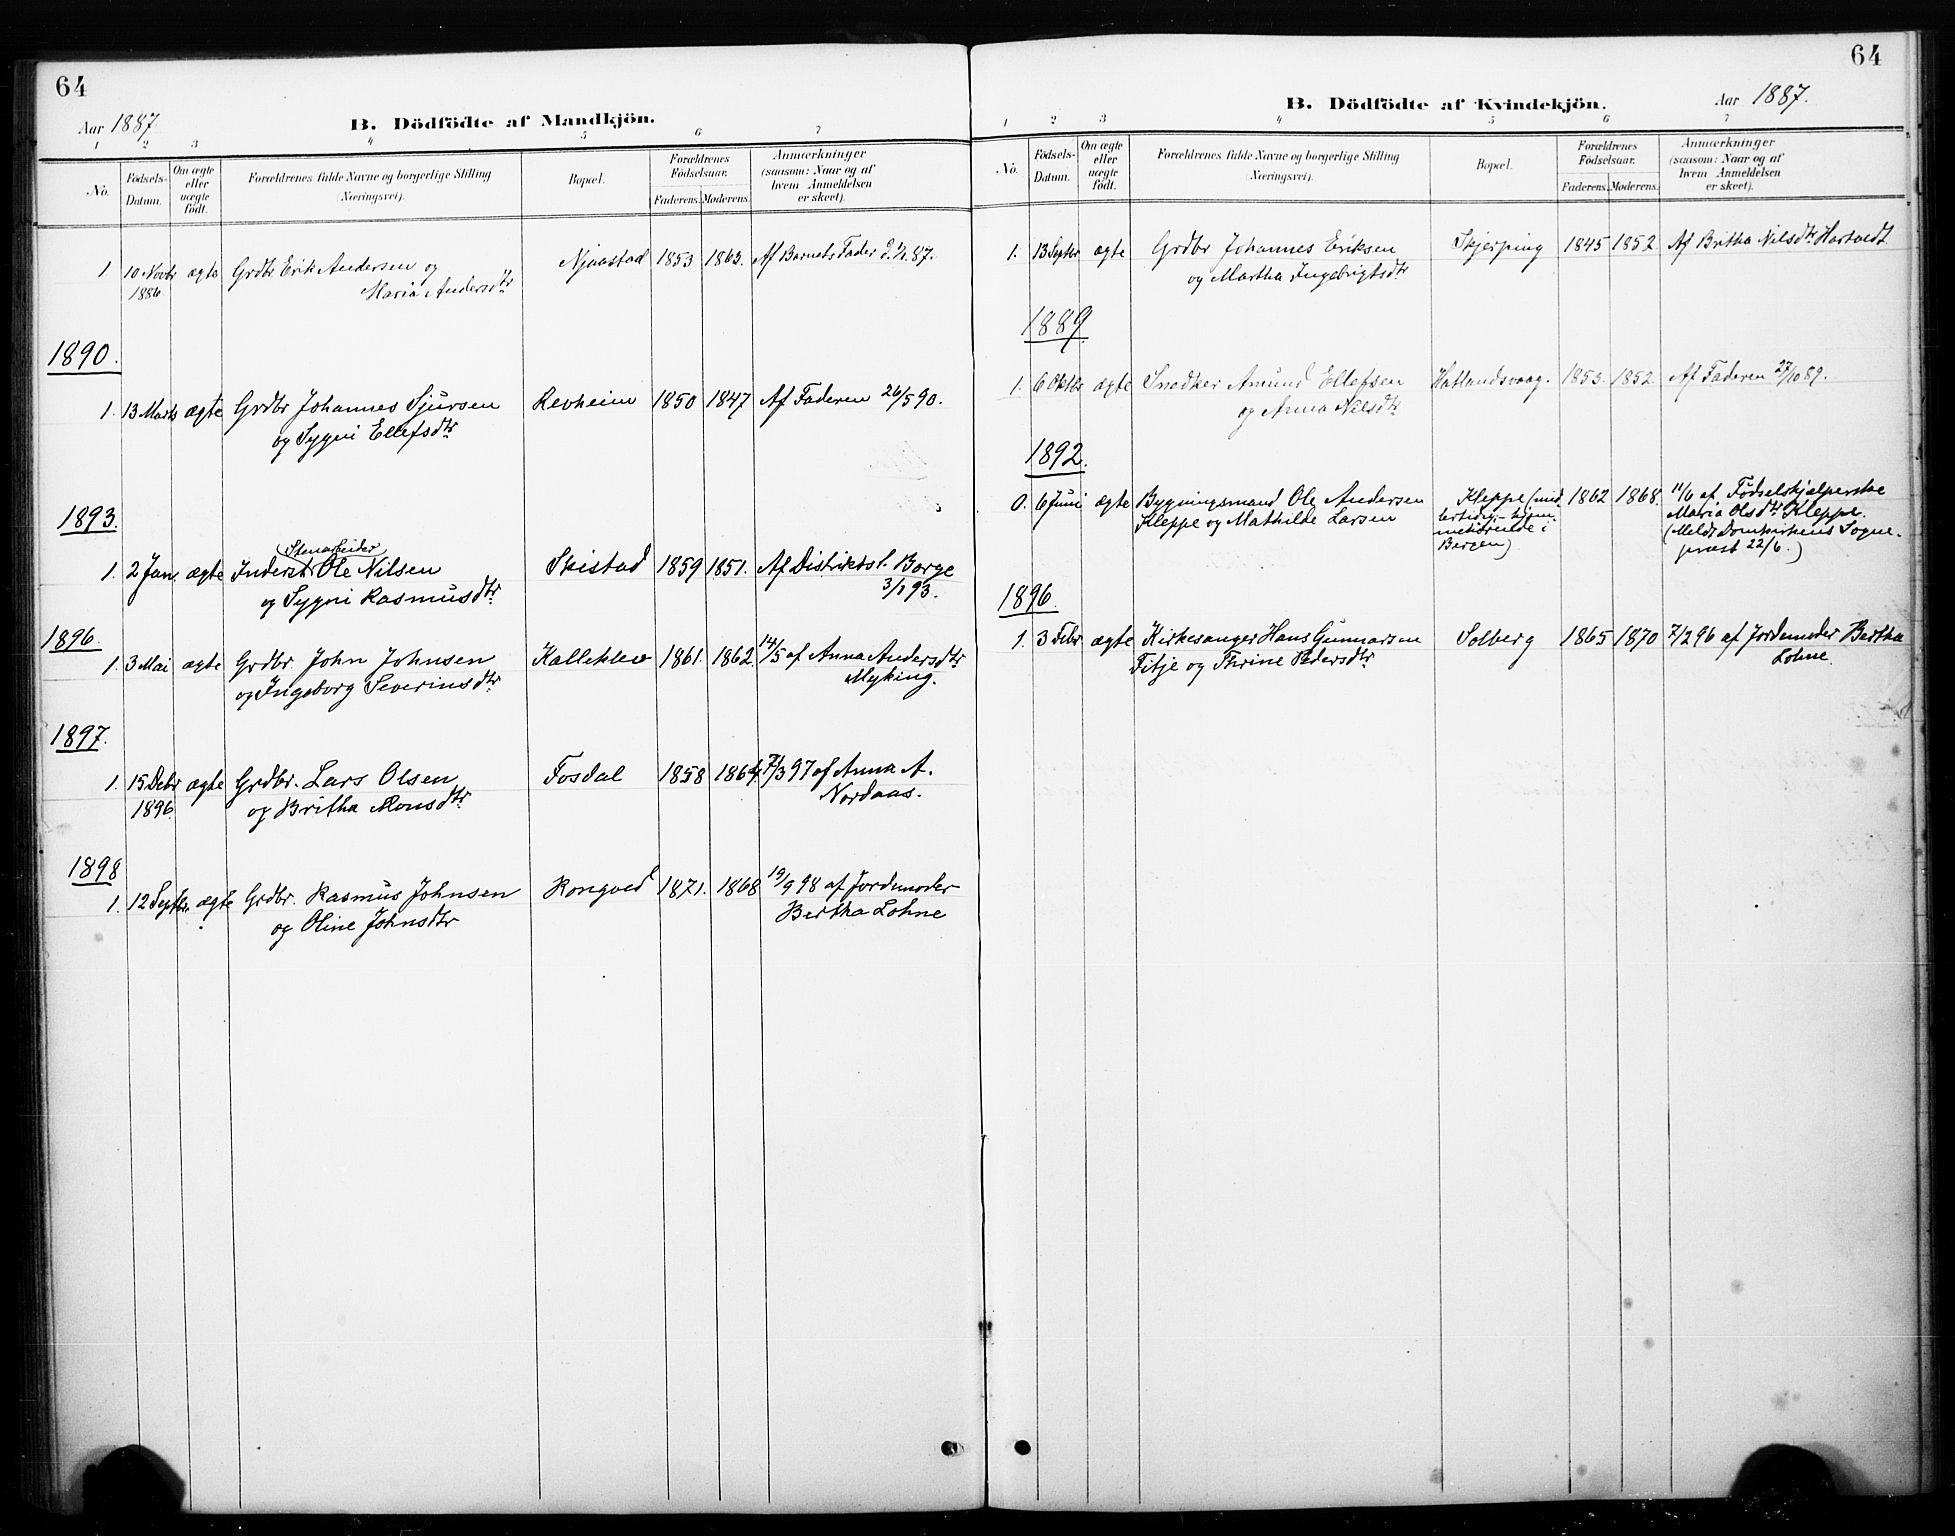 64
Aar 1887.
B. Dödfödte af Mandkjön.
1 2 3 4 5 6 7
No. Födsels-Datum. Om ægte eller uægte födt. Forældrenes fulde Navne og borgerlige Stilling (Næringsvei). Bopæl. Forældrenes Födselsaar. Faderens. Moderens. Anmærkninger (saasom: Naar og af hvem Anmeldelsen er skeet).
1 10 Novbr ægte Grdbr Erik Andersen og Njaastad 1853 1863. Af Barnets Fader
1886 Maria Andersdtr
1890.
1. 13 Marts ægte Grdbr Johannes Sjursen Revheim 1850 1847 Af Faderen 26/5 90.
og Sygni Ellefsdtr
1893.
Stenarbeider
1. 2 Jan. ægte Inderst Ole Nilsen Skistad 1859 1851. Af Distriktsl. Borge
og Sygni Rasmusdtr 3/1 93.
1896.
1. 3 Mai ægte Grdbr. John Johnsen Kalleklev 1861. 1862. 14/5 af Anna Andersdtr
og Ingeborg Severinsdtr Myking.
1897.
1. 15 Debr ægte Grdbr. Lars Olsen Fosdal 1858 1864 7/3 97 af Anna A.
1896. og Britha Monsdtr Nordaas.
1898
1. 12 Septbr. ægte Grdbr. Rasmus Johnsen Rongved 1871. 1868 19/9 98 af Jordemoder
og Oline Johnsdtr Bertha Lohne
64
Aar 1887.
B. Dödfödte af Kvindekjön.
1 2 3 4 5 6 7
No. Födsels-Datum. Om ægte eller uægte födt. Forældrenes fulde Navne og borgerlige Stilling (Næringsvei). Bopæl. Forældrenes Födselsaar. Faderens. Moderens. Anmærkninger (saasom: Naar og af hvem Anmeldelsen er skeet).
1. 13 Septbr ægte Grdbr Johannes Eriksen Skjerping 1845 1852 Af Britha Nilsdtr Hartvedt
og Martha Ingebrigtsdtr
1889.
1. 6 Oktbr ægte Snedker Amund Ellefsen Hatlandsvaag. 1853. 1852. Af Faderen 27/10 89.
og Anna Nilsdtr
1892.
0. 6 Juni ægte Bygningsmand Ole Andersen Kleppe (mid- 1862 1868. 11/6 af Fødselshjælperske
Kleppe og Mathilde Larsen lertidig hjem- Maria Olsdtr Kleppe.
mehørende i (Meldt Domkirkens Sogne-
Bergen) præst 22/6.)
1896.
1. 3 Febr ægte Kirkesanger Hans Gunnarsen Solberg 1865 1870 7/2 96 af Jordemoder Bertha
Titje og Thrine Pedersdtr Lohne.